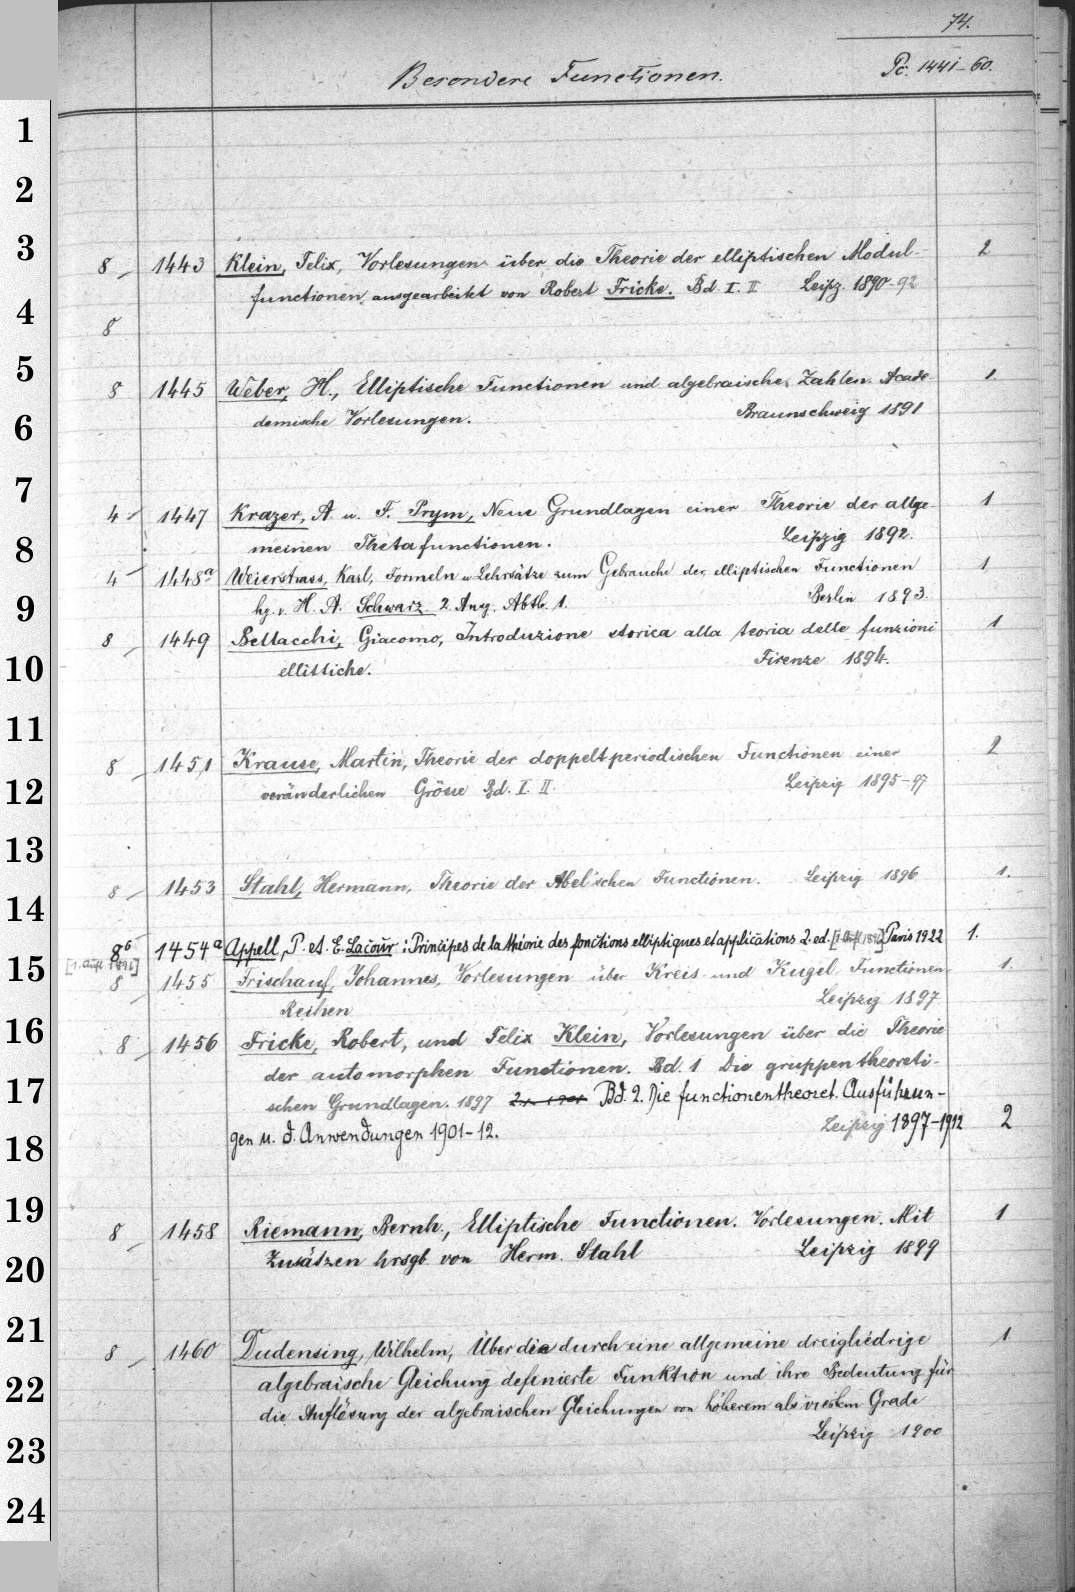 74.
Besondere Functionen. Pc. 1441-60.
1
2
3
8 1443 Klein, Felix, Vorlesungen über die Theorie der elliptischen Modul- 2
functionen, ausgearbeitet von Robert Fricke. Bd. I. II Leipz. 1890-92
4
8
5
8 1445 Weber, H., Elliptische Functionen und algebraische Zahlen. Acade- 1.
demische Vorlesungen. Braunschweig 1891
6
7
4 1447 Krazer, A. u. F. Prym, Neue Grundlagen einer Theorie der allge- 1
meinen Thetafunctionen. Leipzig 1892.
8
4 1448a Weierstrass, Karl, Formeln u. Lehrsätze zum Gebrauche der elliptischen Functionen 1
hg. v. H. A. Schwarz 2. Ausg. Abth. 1. Berlin 1893.
9
8 1449 Bellacchi, Giacomo, Introduzione storica alla teoria delle funzioni 1
ellittiche. Firenze 1894.
10
11
8 1451 Krause, Martin, Theorie der doppeltperiodischen Functionen einer 2
veränderlichen Grösse Bd. I. II. Leipzig 1895-97
12
13
8 1453 Stahl, Hermann, Theorie der Abel'schen Functionen. Leipzig 1896 1.
14
8b 1454a Appell, P. et. E. Lacour: Principes de la théorie des fonctions elliptiques et applications 2. ed. Paris 1922 1.
[1. Aufl. 1896]
15
8 1455 Frischauf, Johannes, Vorlesungen über Kreis- und Kugel Functionen 1.
Reihen Leipzig 1897
16
8 1456 Fricke, Robert, und Felix Klein, Vorlesungen über die Theorie
der automorphen Functionen. Bd. 1 Die gruppentheoreti-
17
schen Grundlagen. 1897 Bd. 2. Die functionentheoret. Ausführun-
gen u. d. Anwendungen 1901-12. Leipzig 1897-1912 2
18
19
8 1458 Riemann, Bernh., Elliptische Functionen. Vorlesungen. Mit 1
Zusätzen hrsgb. von Herm. Stahl Leipzig 1899
20
21
8 1460 Dudensing, Wilhelm, Über die durch eine allgemeine dreigliedrige 1
algebraische Gleichung definierte Funktion und ihre Bedeutung für
22
die Auflösung der algebraischen Gleichungen von höherem als viertem Grade
Leipzig 1900
23
24